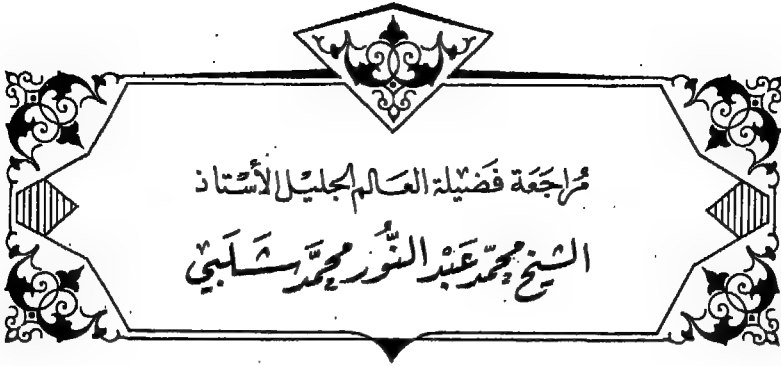 مُرَاجَعَة فَضيلة العَالم الجليل الأسْتاذ
الشيخ محمّد عَبْد النُّور محمَّد شَلَبيْ